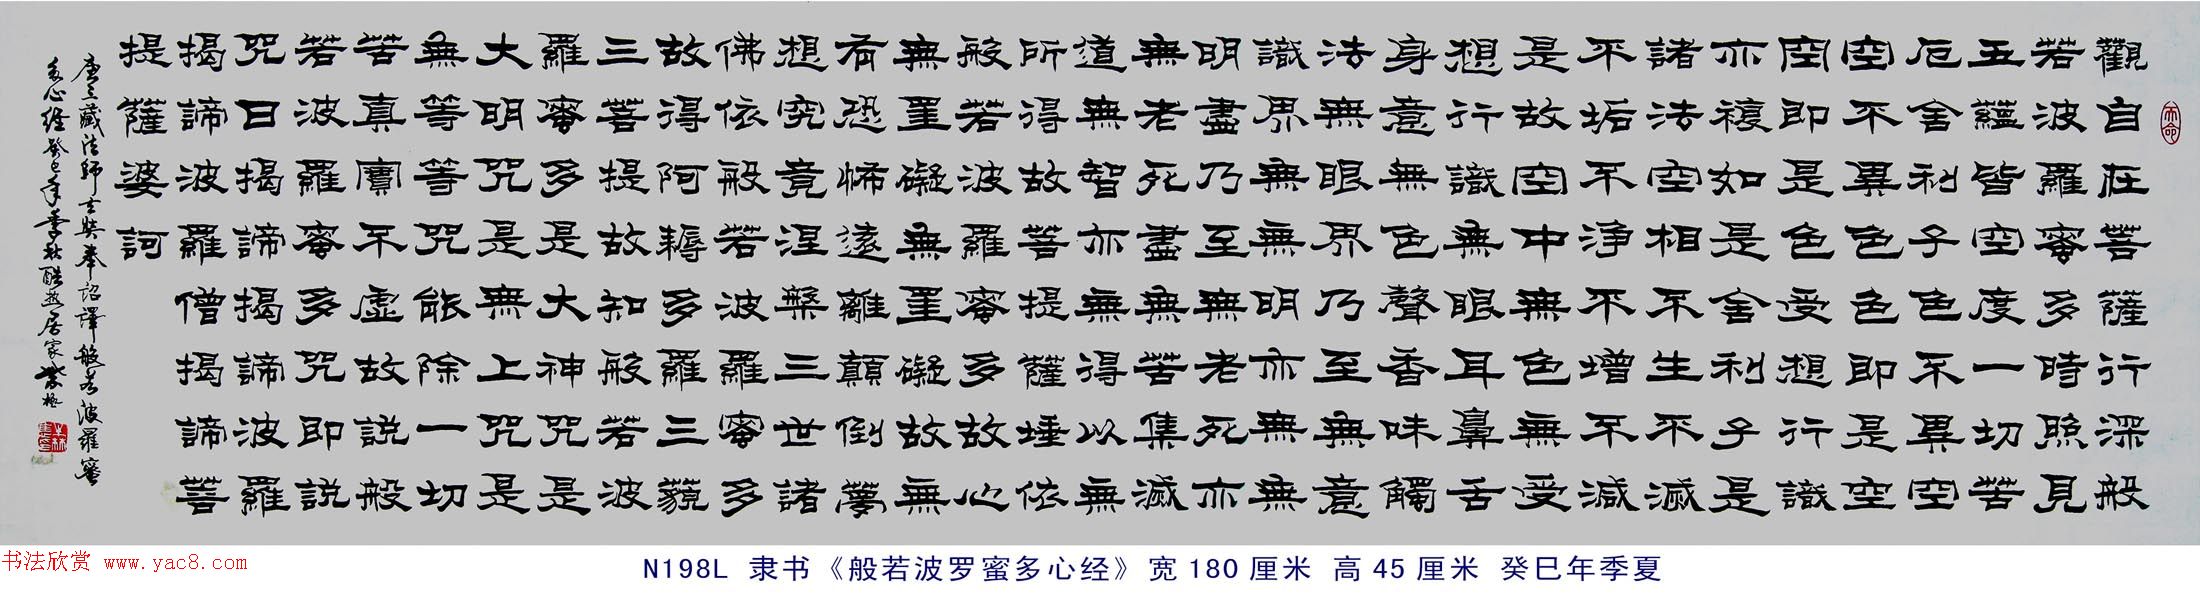 天命
觀自在菩薩行深般
若波羅蜜多時照見
五蘊皆空度一切苦
厄舍利子色不異空
空不異色色即是空
空即是色受想行識
亦複如是舍利子是
諸法空相不生不滅
不垢不淨不增不減
是故空中無色無受
想行識無眼耳鼻舌
身意無色聲香味觸
法無眼界乃至無意
識界無無明亦無無
明盡乃至無老死亦
無老死盡無苦集滅
道無智亦無得以無
所得故菩提薩埵依
般若波羅蜜多故心
無罣礙無罣礙故無
有恐怖遠離顛倒夢
想究竟涅槃三世諸
佛依般若波羅蜜多
故得阿耨多羅三藐
三菩提故知般若波
羅蜜多是大神咒是
大明咒是無上咒是
無等等咒能除一切
苦真實不虛故說般
若波羅蜜多咒即說
咒曰揭諦揭諦波羅
揭諦波羅僧揭諦菩
提薩婆訶
唐三藏法師玄奘奉詔譯般若波羅蜜
多心經癸巳年季秋酷熱居家
书法欣赏 www.yac8.com
N198L 隶书《般若波罗蜜多心经》宽180厘米 高45厘米 癸巳年季夏